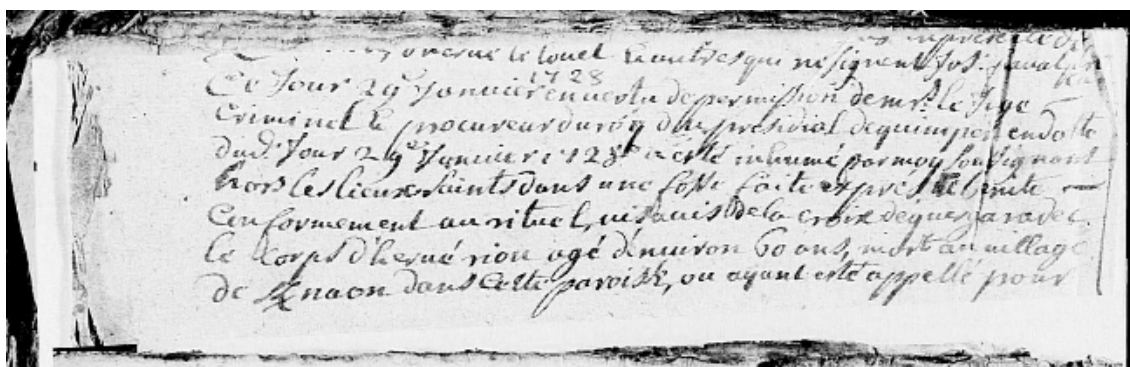 herve le louet & autres qui ne signent
Ce Jour 29e Janvier 1728 en vertu de permission de mr. le Juge
Criminel & procureur du roy du presidial de quimper en datte
dud. Jour 29e Janvier 1728 a esté inhumé par moy soussignant
hors les lieux saints dans une fosse faite exprés & benite
Conformement au rituel, vis avis de la croix de
le Corps d'hervé riou agé d'environ 60 ans, mort au village
de dans cette paroisse, ou ayant esté appellé pour